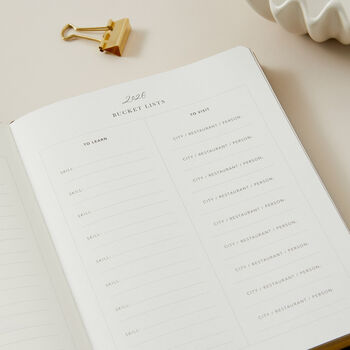 2026
BUCKET LISTS
TO LEARN
SKILL:
SKILL:
SKILL:
SKILL:
SKILL:
SKILL:
SKILL:
SKILL:
TO VISIT
CITY / RESTAURANT / PERSON:
CITY / RESTAURANT / PERSON:
CITY / RESTAURANT / PERSON:
CITY / RESTAURANT / PERSON:
CITY / RESTAURANT / PERSON:
CITY / RESTAURANT / PERSON:
CITY / RESTAURANT / PERSON:
CITY / RESTAURANT / PERSON: